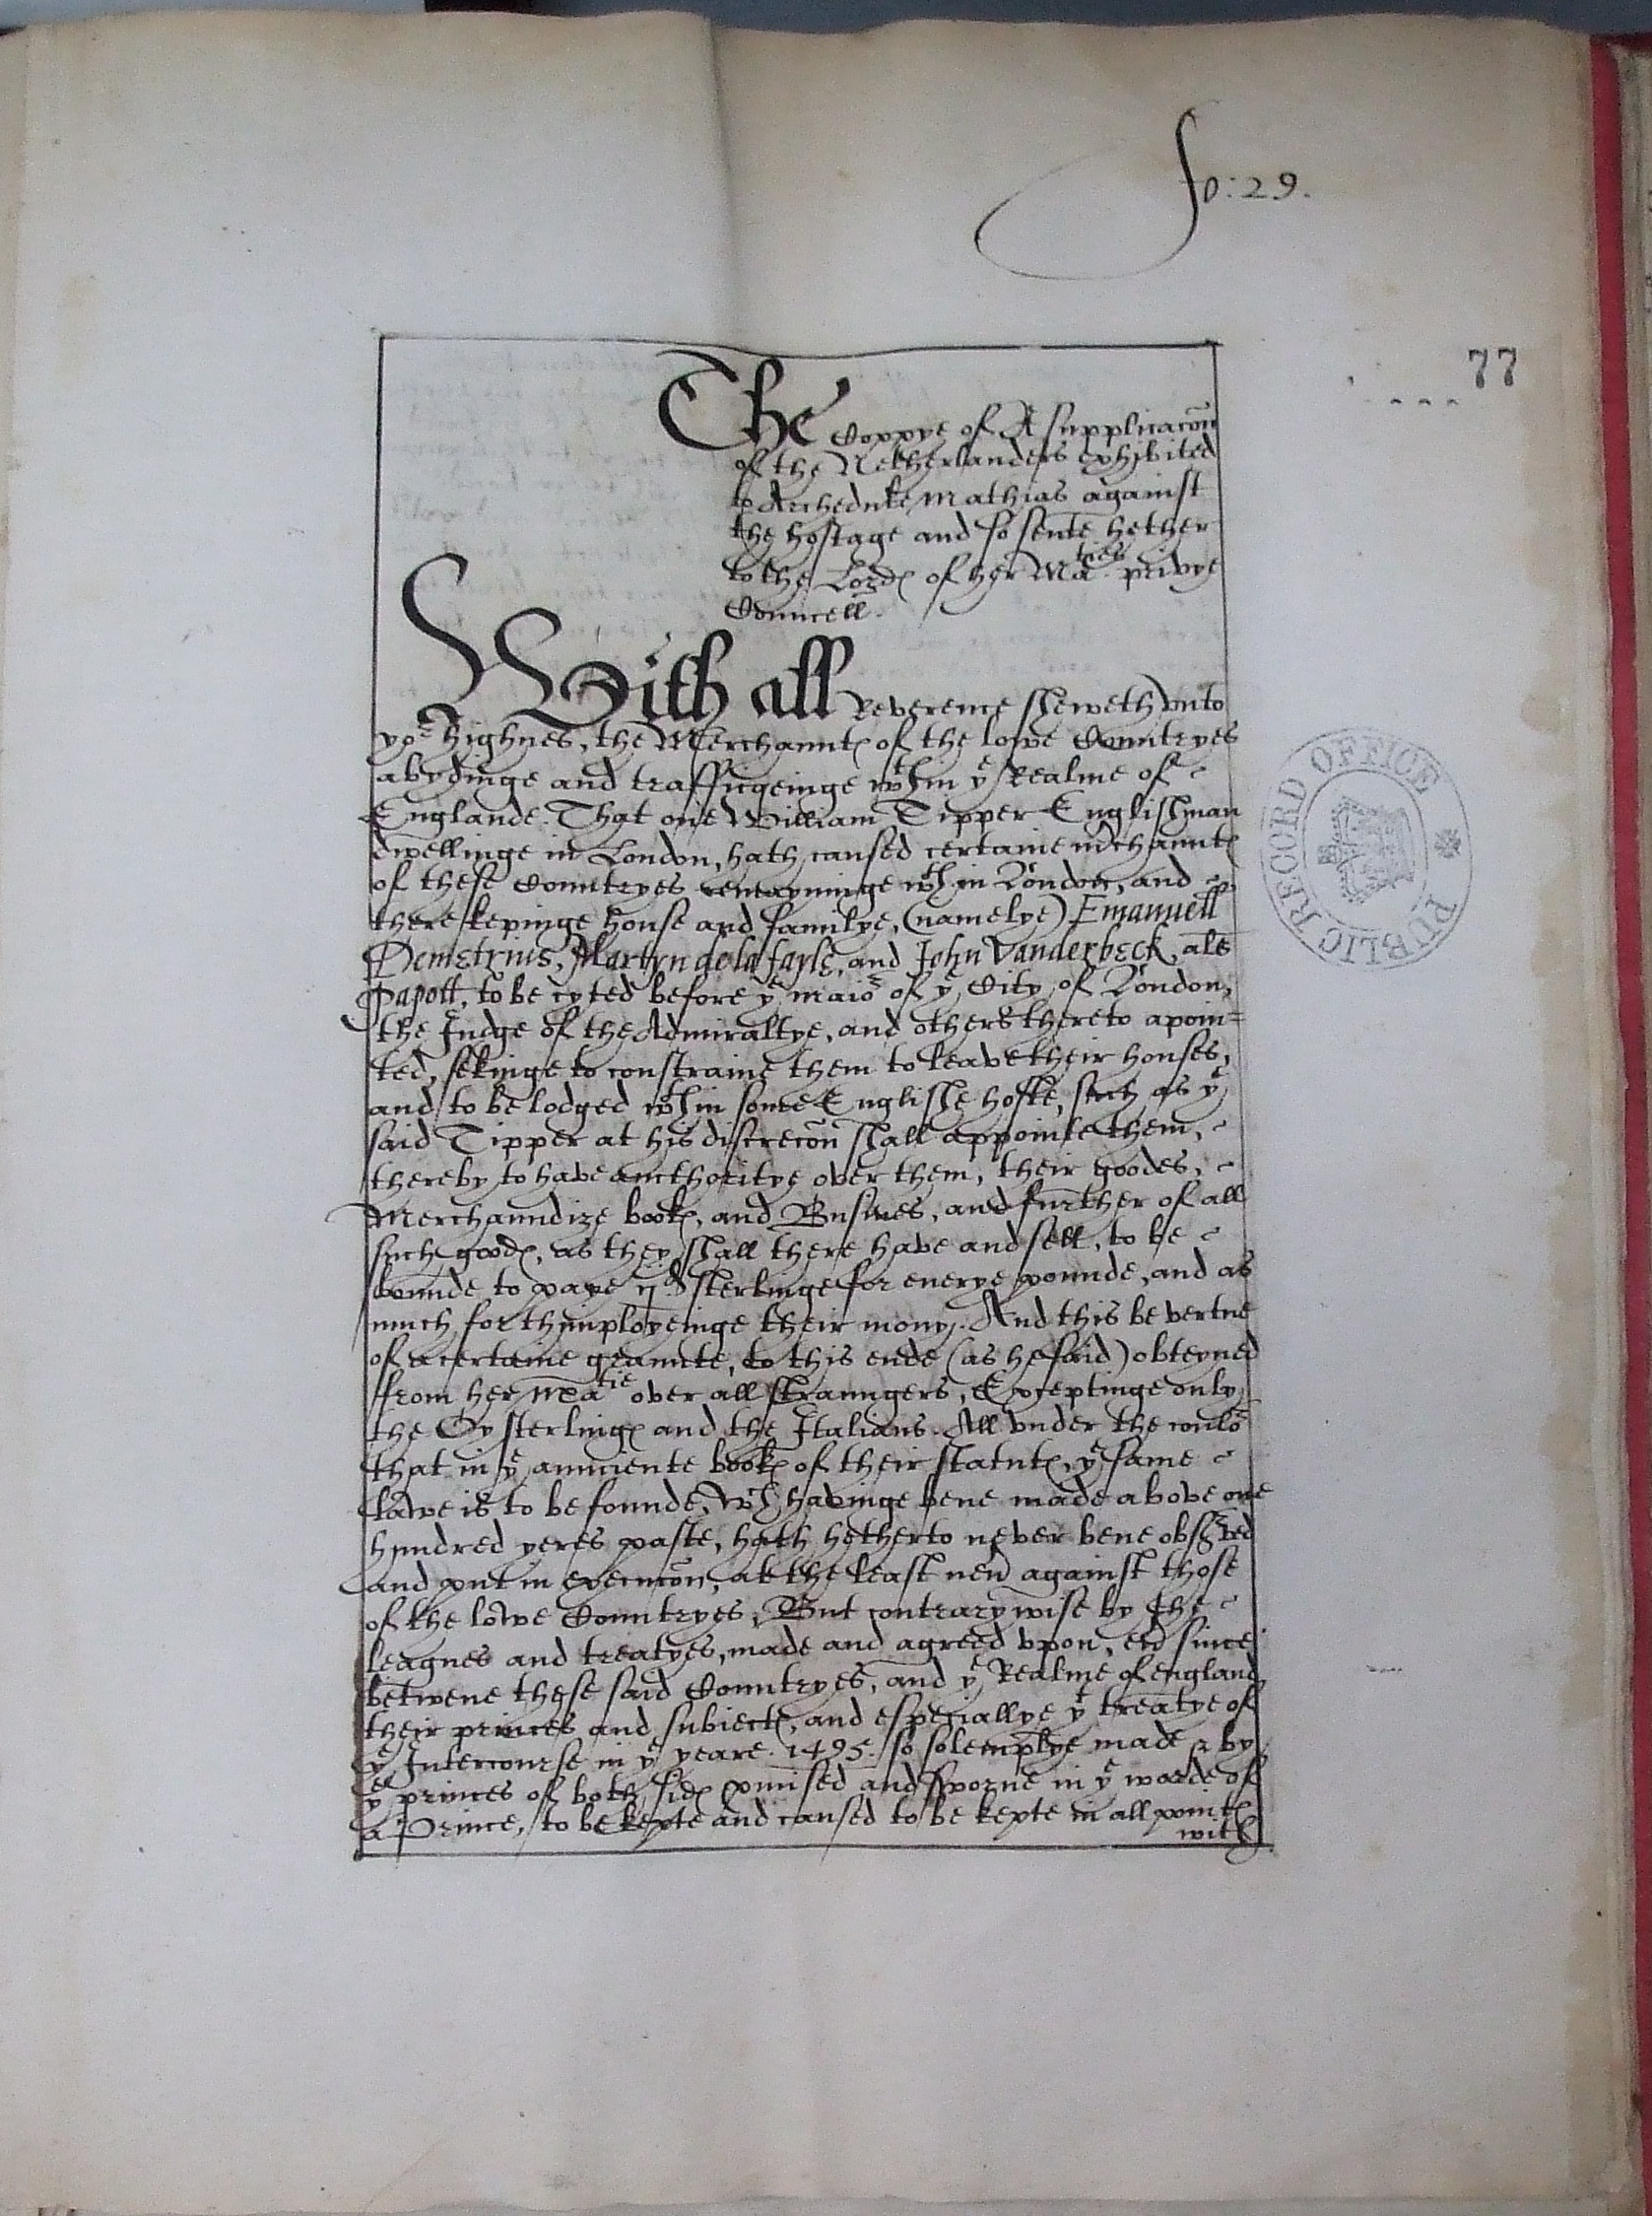 fo: 29.
77
The Coppye of A supplicacõn
of the Netherlanders exhibited
to Archeduke Mathias against
the hostage and so sente hether
to the Lordes of her Ma.ties privye
Councell.
With all Reverence sheweth vnto
yor highnes, the Merchauntes of the lowe Countryes
abydinge and traffiqeinge wthin ye Realme of
Englande. That one William Tipper Englishman
dwellinge in London, hath caused certaine mchauntes
of these Countryes remayninge wthin London, and
there kepinge house and familye, (namelye) Emanuell
Demetrius, Martyn de la fayle, and John Vanderbeck, als
Papott, to be cyted before ye maior of ye City of London,
the Judge of the Admiraltye, and others thereto apoin=
ted, sekinge to constraine them to leave their houses,
and to be lodged wthin some Englishe hoste, such as ye
said Tipper at his discrecõn shall appointe them,
thereby to have aucthoritye over them, their goodes,
Merchaundize bookes, and Busines, and further of all
such goodes, as they shall there have and sell, to be
bounde to paye ijd sterlinge for euerye pounde, and as
much for thimployeinge their mony. And this be vertue
of a certaine graunte, to this ende (as he said) obteyned
from her Matie over all straungers, Exceptinge only
the Oysterlinges and the Italians. All vnder the coulor
that in ye aunciente bookes of their statutes, ye same
lawe is to be founde, wch havinge bene made above one
hundred yeres paste, hath hetherto never bene observed
and put in execucõn, at the least neu against those
of the lowe Countryes, But contrarywise by the
leagues and treatyes, made and agreed vpon, eu since
betwene these said Countryes, and ye Realme of england
their princes and subiectes, and especiallye yt treatye of
ye Intercourse in ye yeare. 1495. so solemplye made & by
ye princes of both sides pmised and sworne in ye worde of
a Prince, to be kepte and caused to be kepte in all pointes
with
PUBLIC RECORD OFFICE